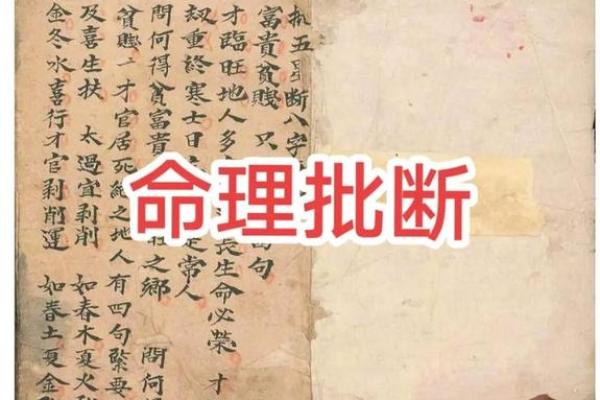 五星断八字
富貴貧賤 只 句
才臨旺地人多 長生命必榮 才
劫重終寒士日 是常人
問何得貧富貴 之鄉 問何
貧賤一才官居死絶之地人有四句緊要
及喜生扶 太過宜剥削 如春木夏火
金冬水喜行才官剥削運 如春土夏金
命理批断